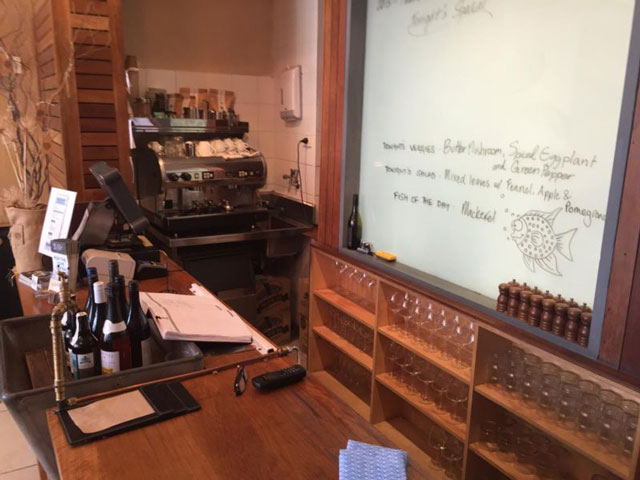 Tonight's Special
TONIGHT'S VEGGIES Butter Mushroom, Spiced Eggplant
and Green Pepper
TONIGHT'S SALAD - Mixed leaves w Fennel, Apple &
Pomegrana
FISH OF THE DAY Mackerel